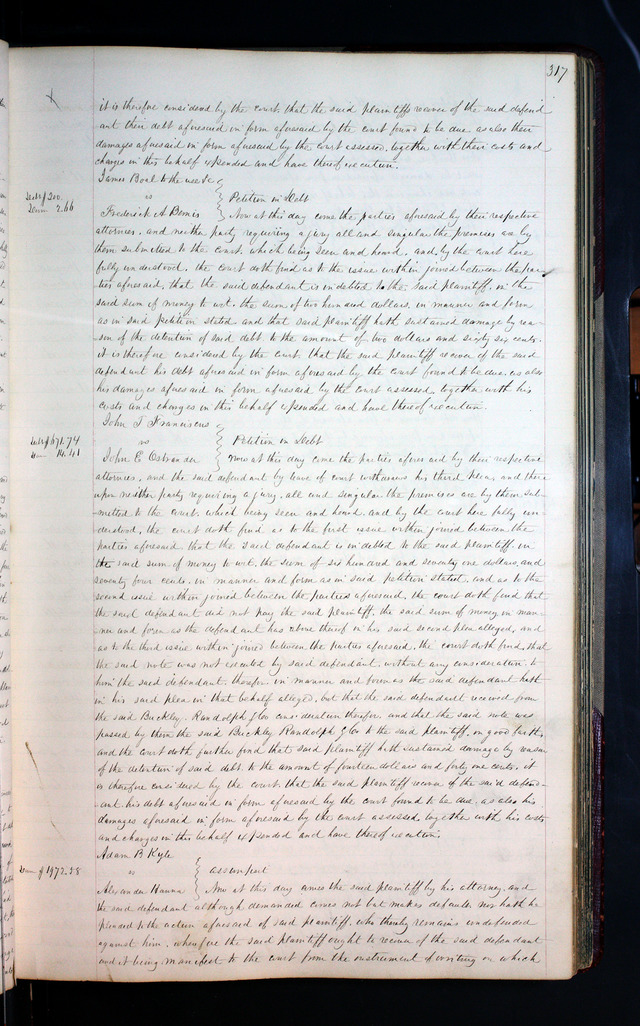 317
it is therefore considered by the court, that the said plaintiffs recover of the said defend
ant their debt aforesaid in form aforesaid by the court found to be due as also their
damages aforesaid in form aforesaid by the court assessed, together with their costs and
charges in this behalf expended and have thereof execution.
James Boal to the use &c
Debt $200.
Dam 2.66
vs
Petition in Debt
Frederick A Bemis
Now at this day come the parties aforesaid by their respective
attornies, and neither party requiring a jury all and singular the premises are by
them submitted to the court, which being seen and heard, and by the court here
fully understood, the court doth find as to the issue within joined between the par
ties aforesaid, that the said defendant is indebted to the said plaintiff, in the
said sum of money to wit, the sum of two hundred dollars, in manner and form
as in said petition stated and that said plaintiff hath sustained damage by rea-
son of the detention of said debt to the amount of two dollars and sixty six cents.
it is therefore considered by the court that the said plaintiff recover of the said
defendant his debt aforesaid in form aforesaid by the court found to be due, as also
his damages aforesaid in form aforesaid by the court assessed, together with his
costs and charges in this behalf expended and have thereof execution.
John T Franciscus
Debt $671.74
Dam 14.41
vs
Petition in Debt
John E Ostrander
Now at this day come the parties aforesaid by their respective
attornies, and the said defendant by leave of court withdraws his third plea, and there
upon neither party requiring a jury, all and singular the premises are by them sub-
mitted to the court, which being seen and heard, and by the court here fully un-
derstood, the court doth find as to the first issue within joined between the
parties aforesaid that the said defendant is indebted to the said plaintiff, in
the said sum of money to wit, the sum of six hundred and seventy one dollars, and
seventy four cents, in manner and form as in said petition stated, and as to the
second issue within joined between the parties aforesaid, the court doth find that
the said defendant did not pay the said plaintiff, the said sum of money, in man-
ner and form as the defendant has above thereof in his said second plea alleged, and
as to the third issue within joined between the parties aforesaid, the court doth find, that
the said note was not executed by said defendant without any consideration to
him the said defendant, therefor, in manner and form as the said defendant hath
in his said plea in that behalf alleged, but that the said defendant received from
the said Buckley, Randolph & Co consideration therefor and that the said note was
passed by them the said Buckley Randolph & Co to the said plaintiff, in good faith,
and the court doth further find that said plaintiff hath sustained damage by reason
of the detention of said debt to the amount of fourteen dollars and forty one cents, it
is therefore considered by the court, that the said plaintiff recover of the said defend-
ant his debt aforesaid in form aforesaid by the court found to be due, as also his
damages aforesaid in form aforesaid by the court assessed together with his costs
and charges in this behalf expended and have thereof execution.
Adam B Kyle
Dam $1972.28
vs
assumpsit
Alexander Hanna
Now at this day comes the said plaintiff by his attorney, and
the said defendant although demanded comes not but makes default nor hath he
pleaded to the action aforesaid of said plaintiff, who thereby remains undefended
against him, wherefore the said plaintiff ought to recover of the said defendant
and it being manifest to the court from the instrument of writing on which